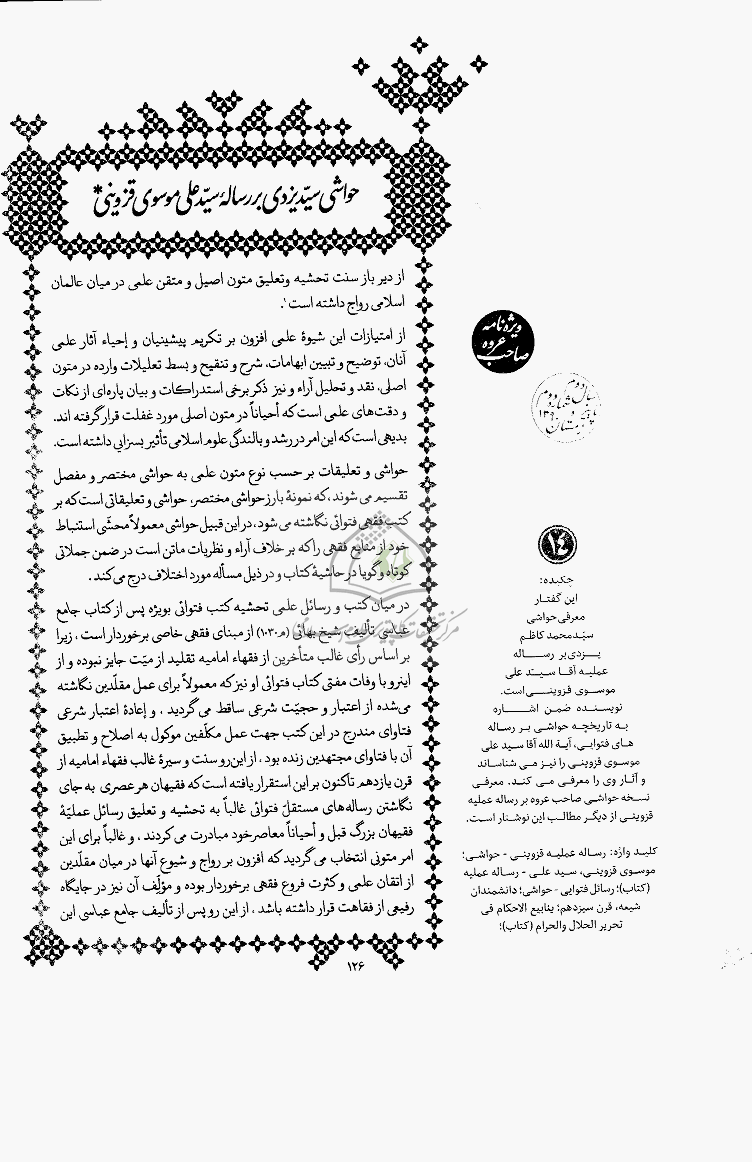 حواشی سیّد یزدی بر رسالهٔ سیّد علی موسوی قزوینی*
از دیر باز سنت تحشیه وتعلیق متون اصیل و متقن علمی در میان عالمان
اسلامی رواج داشته است۱.
از امتیازات این شیوهٔ علمی افزون بر تکریم پیشینیان و إحیاء آثار علمی
آنان، توضیح و تبیین ابهامات، شرح و تنقیح و بسط تعلیلات وارده در متون
اصلی، نقد و تحلیل آراء و نیز ذکر برخی استدراکات و بیان پاره‌ای از نکات
و دقت‌های علمی است که أحیاناً در متون اصلی مورد غفلت قرار گرفته اند.
بدیهی است که این امر در رشد و بالندگی علوم اسلامی تأثیر بسزایی داشته است.
حواشی و تعلیقات بر حسب نوع متون علمی به حواشی مختصر و مفصل
تقسیم می شوند، که نمونهٔ بارز حواشی مختصر، حواشی و تعلیقاتی است که بر
کتب فقهی فتوائی نگاشته می شود، در این قبیل حواشی معمولاً محشّی استنباط
خود از منابع فقهی را که بر خلاف آراء و نظریات ماتن است در ضمن جملاتی
کوتاه وگویا در حاشیهٔ کتاب و در ذیل مسأله مورد اختلاف درج می کند.
در میان کتب و رسائل علمی تحشیه کتب فتوائی بویژه پس از کتاب جامع
عباسی تألیف شیخ بهائی (م۱۰۳۰) از مبنای فقهی خاصی برخوردار است، زیرا
بر اساس رأی غالب متأخرین از فقهاء امامیه تقلید از میّت جایز نبوده و از
اینرو با وفات مفتی کتاب فتوائی او نیز که معمولاً برای عمل مقلّدین نگاشته
می‌شده از اعتبار و حجیّت شرعی ساقط می گردید، و إعادهٔ اعتبار شرعی
فتاوای مندرج در این کتب جهت عمل مکلّفین موکول به اصلاح و تطبیق
آن با فتاوای مجتهدین زنده بود، از این‌رو سنت و سیرهٔ غالب فقهاء امامیه از
قرن یازدهم تاکنون بر این استقرار یافته است که فقیهان هر عصری به جای
نگاشتن رساله‌های مستقلّ فتوائی غالباً به تحشیه و تعلیق رسائل عملیّهٔ
فقیهان بزرگ قبل و أحیاناً معاصر خود مبادرت می‌کردند، و غالباً برای این
امر متونی انتخاب می گردید که افزون بر رواج و شیوع آنها در میان مقلّدین
از اتقان علمی و کثرت فروع فقهی برخوردار بوده و مؤلِّف آن نیز در جایگاه
رفیعی از فقاهت قرار داشته باشد، از این رو پس از تألیف جامع عباسی این
۱۲۶
ویژه نامه
صاحب عروه
چکیده:
این گفتار
معرفی حواشی
سیّدمحمد کاظم
یـزدی بر رسـاله
عملیه آقا سیـد علی
موسوی قزوینی است.
نویسنده ضمن اشـاره
به تاریخچه حواشی بر رساله
های فتوایی، آیة الله آقا سید علی
موسوی قزوینی را نیز می شناساند
و آثار وی را معرفی می کند. معرفی
نسخه حواشی صاحب عروه بر رساله عملیه
قزوینی از دیگر مطالب این نوشتار است.
کلید واژه: رساله عملیه قزوینی - حواشی؛
موسوی قزوینی، سید علی - رساله عملیه
(کتاب)؛ رسائل فتوایی - حواشی؛ دانشمندان
شیعه، قرن سیزدهم؛ ینابیع الاحکام فی
تحریر الحلال والحرام (کتاب)؛